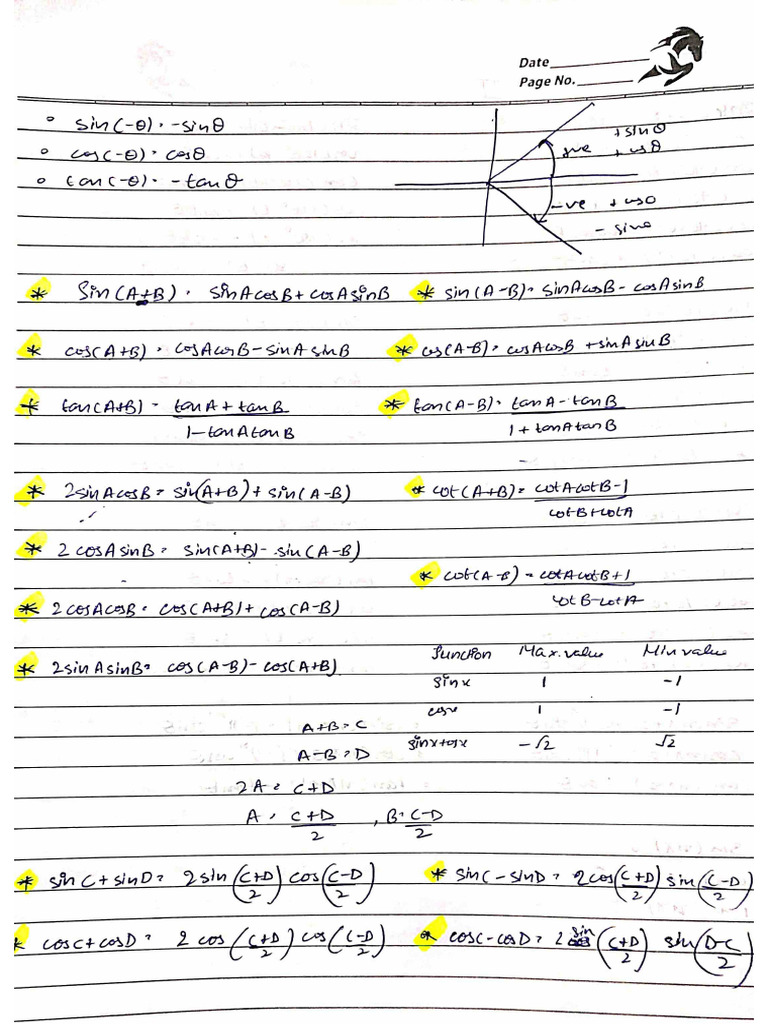 Date
Page No.
• sin(-θ) = -sinθ
• cos(-θ) = cosθ
• tan(-θ) = -tanθ
+sinθ
+ve +cosθ
-ve, +cosθ
- sinθ
* Sin(A+B) = sinAcosB + cosAsinB * sin(A-B) = sinAcosB - cosAsinB
* cos(A+B) = cosAcosB - sinAsinB * cos(A-B) = cosAcosB + sinAsinB
* tan(A+B) = tanA + tanB * tan(A-B) = tanA - tanB
1 - tanAtanB 1 + tanAtanB
* 2sinAcosB = sin(A+B) + sin(A-B) * cot(A+B) = cotAcotB - 1
cotB + cotA
* 2cosAsinB = sin(A+B) - sin(A-B)
* cot(A-B) = cotAcotB + 1
* 2cosAcosB = cos(A+B) + cos(A-B) cotB - cotA
* 2sinAsinB = cos(A-B) - cos(A+B) Function Max.value Min value
sinx 1 -1
cosx 1 -1
A+B = C
sinx+cosx -√2 √2
A-B = D
2A = C+D
A = C+D , B = C-D
2 2
* sinC + sinD = 2sin(C+D/2) cos(C-D/2) * sinC - sinD = 2cos(C+D/2) sin(C-D/2)
* cosC + cosD = 2cos(C+D/2) cos(C-D/2) * cosC - cosD = 2 sin (C+D/2) sin(D-C/2)